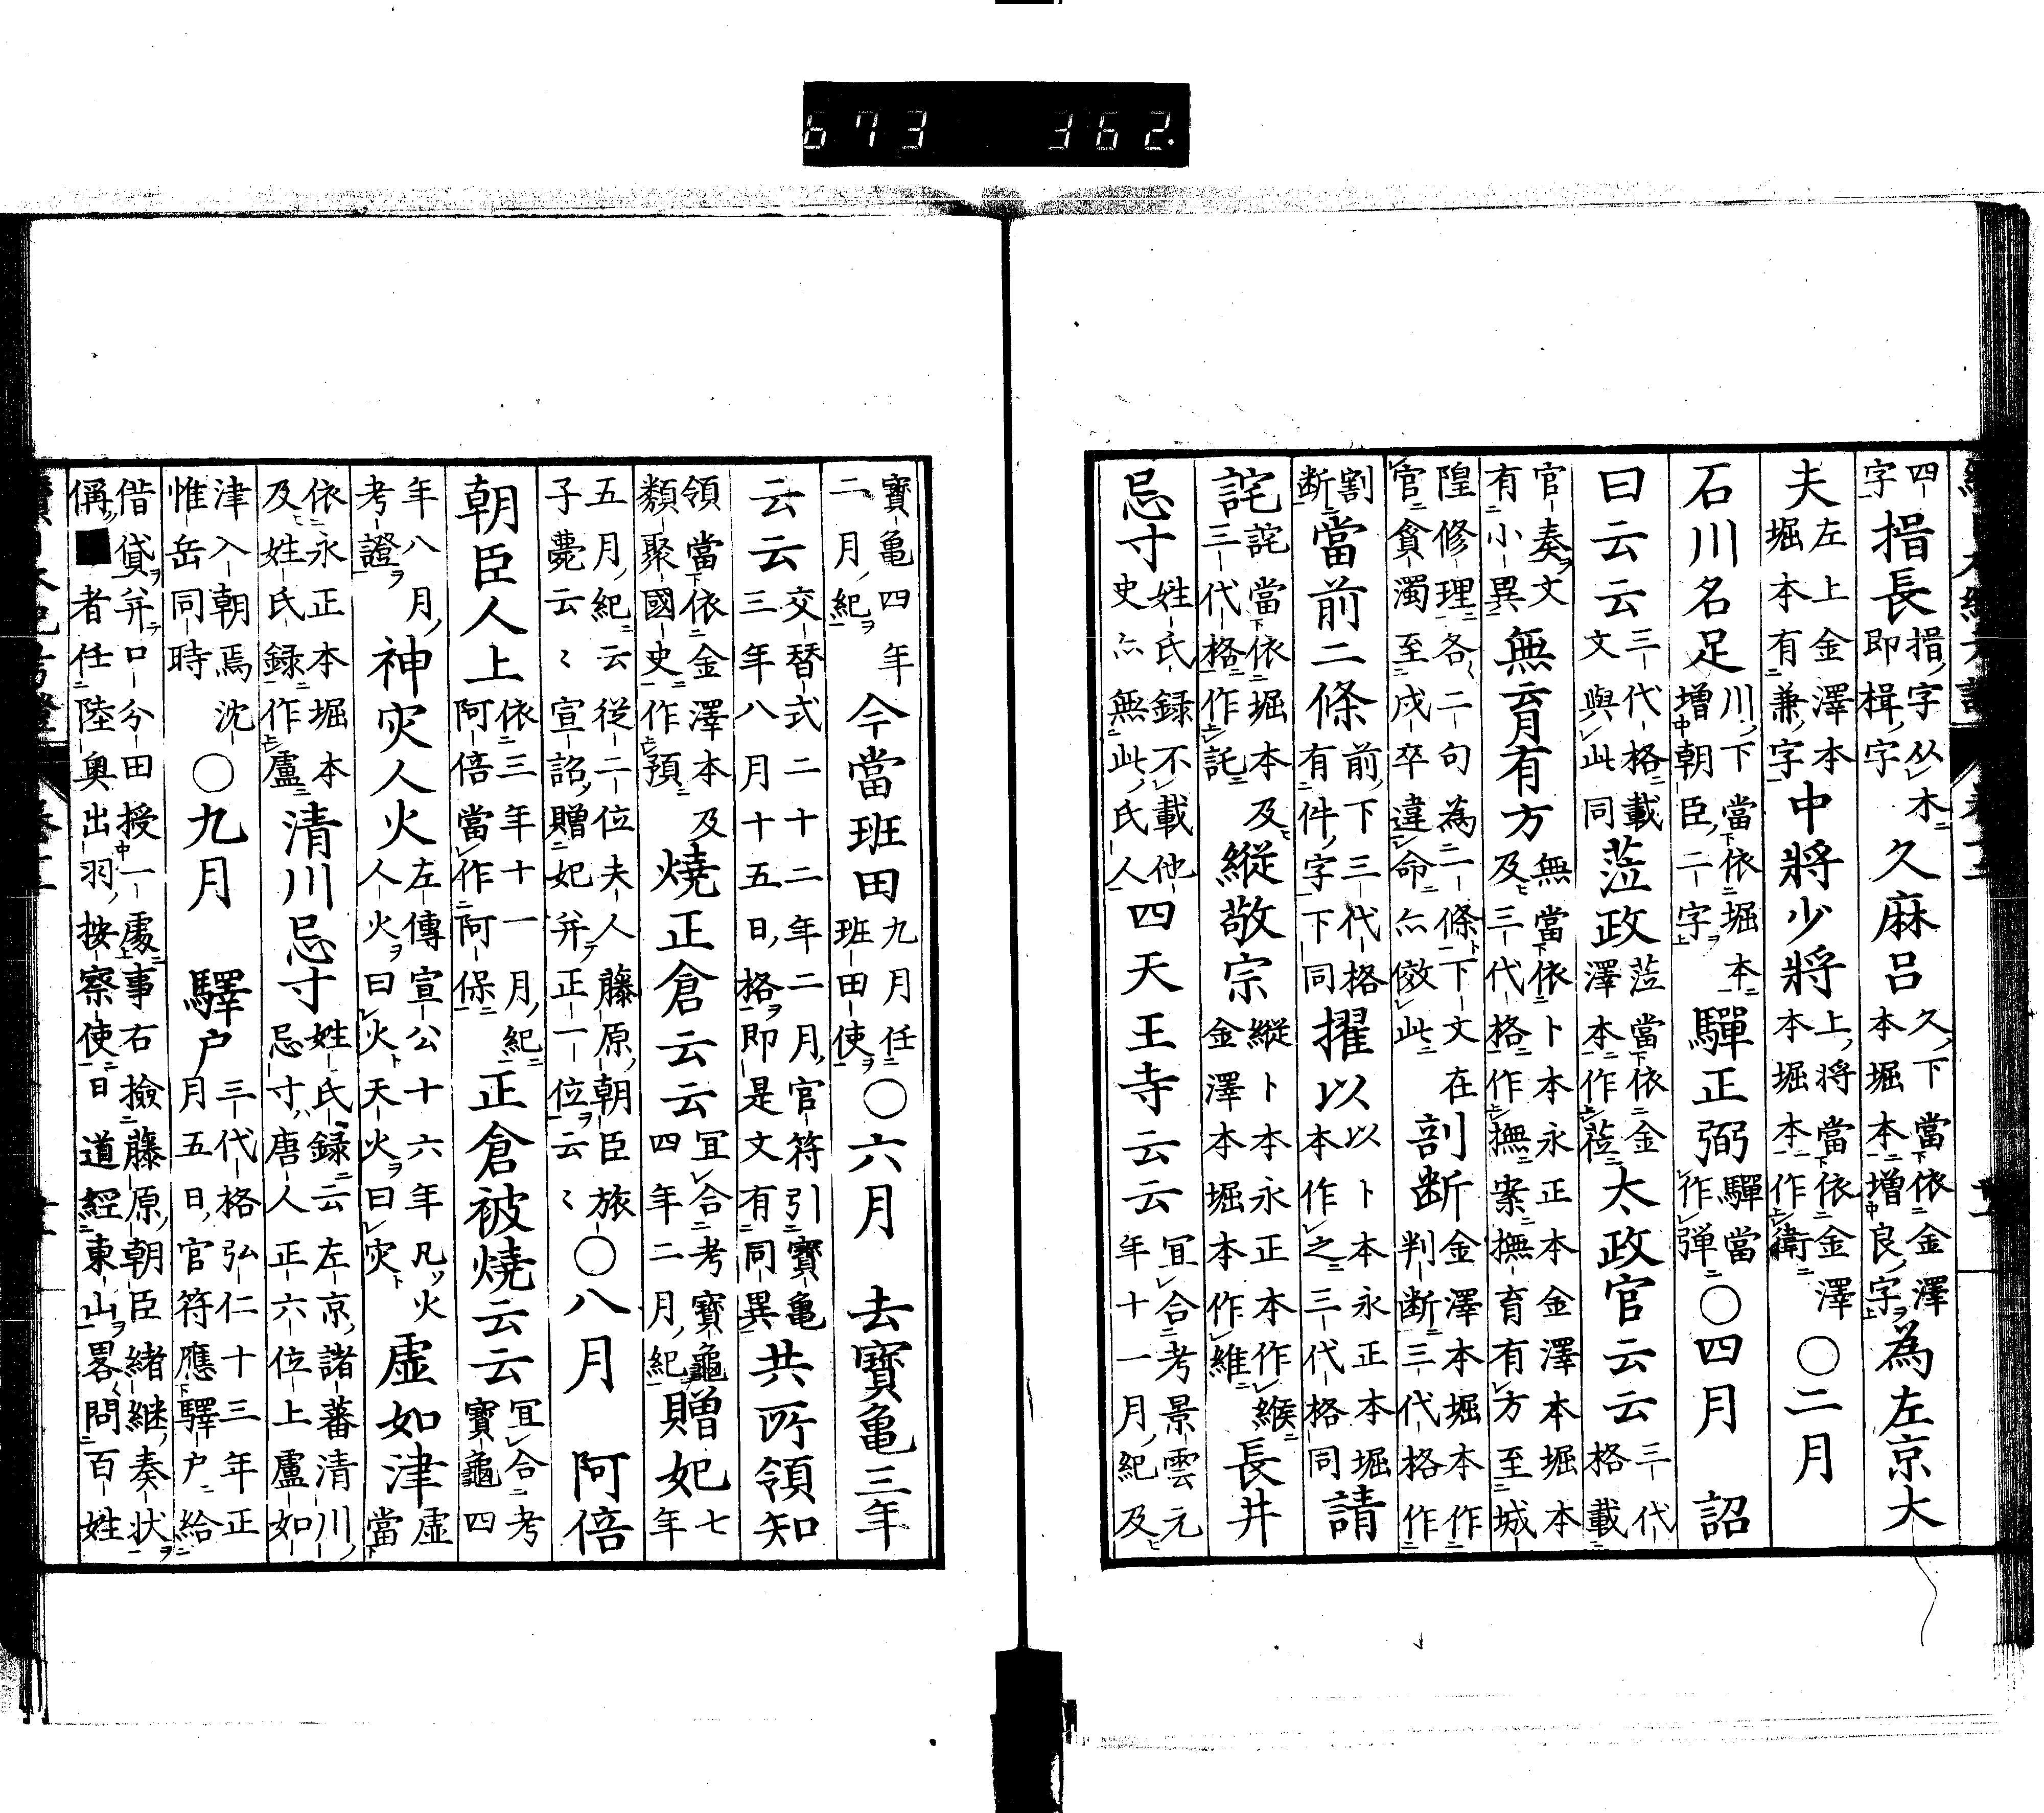 673 362.
四字揩長揩字从木即楫字久麻呂久下當依金澤本堀本增良字為左京大
夫左上金澤本堀本有兼字中將少將上將當依金澤本堀本作衛○二月
石川名足川下當依堀本增朝臣二字驒正弼驒當作弾○四月 詔
曰云云三代格載文與此同蒞政蒞當依金澤本作莅太政官云云三代格載
官奏文有小異無育有方無當依卜本永正本金澤本堀本及三代格作撫案撫育有方至城
隍修理各二句為二條下文在官貪濁至戍卒違命亦傚此剖断金澤本堀本作判断三代格作
割断當前二條前下三代格有件字下同擢以以卜本永正本堀本作之三代格同請
詫詫當依堀本及三代格作託縦敬宗縦卜本永正本作緱金澤本堀本作維長井
忌寸姓氏録不載他史亦無此氏人四天王寺云云宜合考景雲元年十一月紀及
寶龜四年二月紀今當班田九月任班田使○六月 去寶龜三年
云云交替式二十二年二月官符引寶龜三年八月十五日格即是文有同異共所領知
領當依金澤本及類聚國史作預燒正倉云云宜合考寶龜四年二月紀贈妃七年
五月紀云從二位夫人藤原朝臣旅子薨云〻宣詔贈妃并正一位云〻○八月 阿倍
朝臣人上依三年十一月紀阿倍當作阿保正倉被燒云云宜合考寶龜四
年八月考證神灾人火左傳宣公十六年凡火人火曰火天火曰灾虛如津虛當
依永正本堀本及姓氏録作盧清川忌寸姓氏録云左京諸蕃清川忌寸唐人正六位上盧如
津入朝焉沈惟岳同時○九月 驛户三代格弘仁十三年正月五日官符應驛户給
偕貸并口分田授一處事右撿藤原朝臣緒継奏状偁■者任陸奥出羽按察使日道經東山畧問百姓